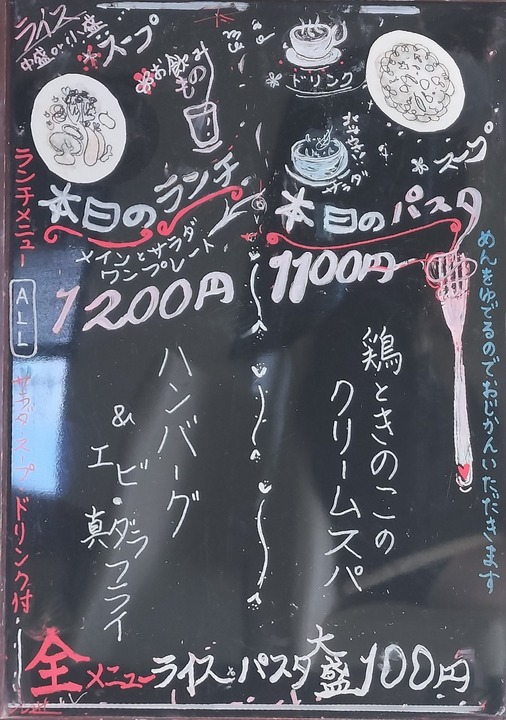 ライス
中盛or小盛
スープ
お飲み
もの
本日のランチ
メインとサラダ
ワンプレート
1200円
ハンバーグ
&
エビ・
真ダラフライ
ドリンク
サラダ
スープ
本日のパスタ
1100円
鶏ときのこの
クリームスパ
めんをゆでるのでおじかんいただきます
ランチメニュー
ALL
サラダ・スープ・ドリンク付
全メニューライスとパスタ大盛100円